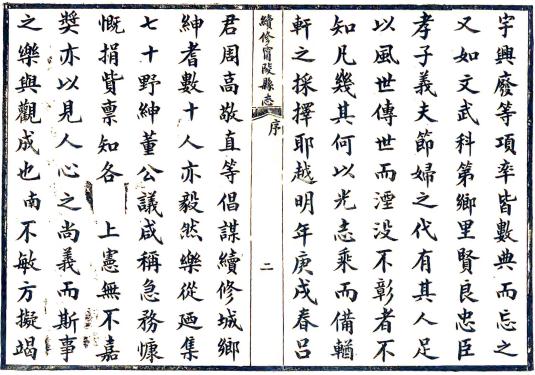 宇興廢等項率皆數典而忘之
又如文武科第鄉里賢良忠臣
孝子義夫節婦之代有其人足
以風世傳世而湮没不彰者不
知凡幾其何以光志乘而備輶
軒之採擇耶越明年庚戌春呂
續修甯陵縣志
序
二
君周高敬直等倡謀續修城鄉
紳耆數十人亦毅然樂從廼集
七十野紳董公議咸稱急務慷
慨捐貲禀知各 上憲無不嘉
獎亦以見人心之尚義而斯事
之樂與觀成也南不敏方擬竭